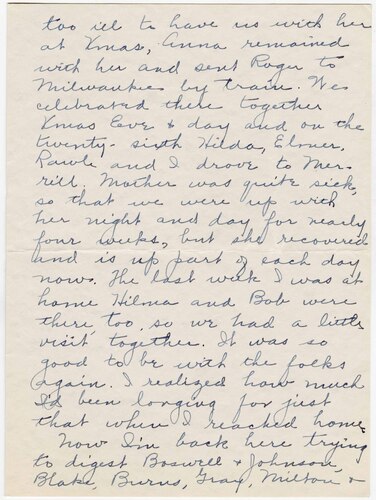 too ill to have us with her
at Xmas, Anna remained
with her and sent Roger to
Milwaukee by train. We
celebrated there together
Xmas Eve & day and on the
twenty-sixth Hilda, Elmer,
and I drove to Mer-
rill. Mother was quite sick,
so that we were up with
her night and day for nearly
four weeks, but she recovered
and is up part of each day
now. The last week I was at
home Hilma and Bob were
there, too, so we had a little
visit together. It was so
good to be with the folks
again. I realized how much
I'd been longing for just
that when I reached home.
Now I'm back here trying
to digest Boswell & Johnson,
Blake, Burns, Gray, Milton &